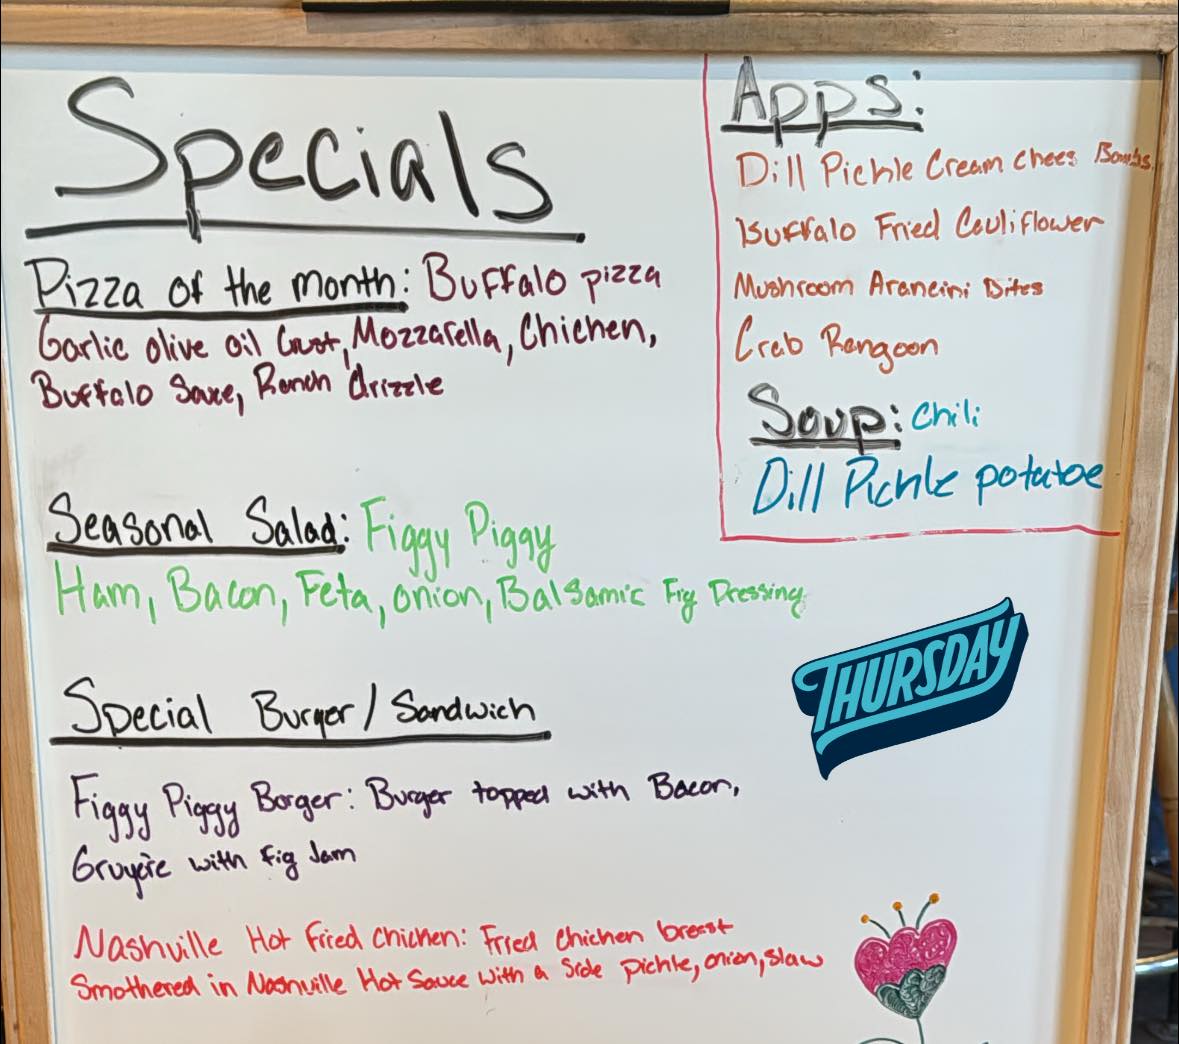 Specials
Pizza of the month: Buffalo pizza
Garlic olive oil Crust, Mozzarella, Chicken,
Buffalo Sauce, Ranch drizzle
Seasonal Salad: Figgy Piggy
Ham, Bacon, Feta, onion, Balsamic Fig Dressing
Special Burger/Sandwich
Figgy Piggy Borger: Burger topped with Bacon,
Gruyère with fig Jam
Nashville Hot Fried Chicken: Fried Chicken breast
Smothered in Nashville Hot Sauce with a Side pickle, onion, slaw
Apps:
Dill Pickle Cream Chees Bombs
Buffalo Fried Cauliflower
Mushroom Arancini Bites
Crab Rangoon
Soup: Chili
Dill Pickle potatoe
THURSDAY